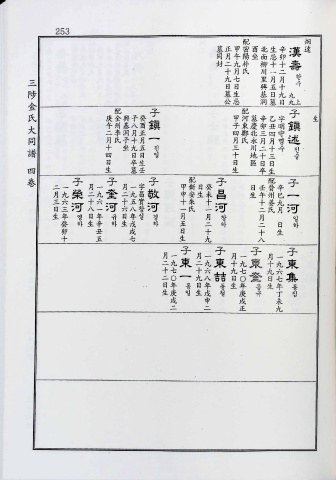 253
三陟金氏大同譜 四卷
漢壽 한수
辛卯十二月十九日
生忌十一月五日墓
北面柳川里碑基洞
酉坐
配密陽朴氏
甲午九月七日生忌
正月二十六日
墓同封
生
子鎮述 진술
字明中
乙丑四月十三日生
辛卯三月二十日卒
墓慶北
配河東鄭氏
甲子四月三十日生
子鎮一 진일
癸酉正月五日生壬
子八月十九日卒墓
興嘉洞子坐
配全州李氏
庚午二月十四日生
子一河 일하
辛巳九月 日生
配晉州姜氏
壬午十二月二十八
日生
子昌河 창하
癸未十一月二十九
日生
配新安朱氏
甲申十一月五日生
子敬河 경하
字昌實
一九五八年戊戌七
月二十六日生
子奎河 규하
一九六一年辛丑五
月二十八日生
子榮河 영하
一九六三年癸卯十
二月三日生
子東集 동집
一九六七年丁未九
月十九日生
子東奎 동규
一九七〇年庚戌正
月十九日生
子東喆 동철
一九六八年戊申二
月二十九日生
子東一 동일
一九七〇年庚戌二
月二十二日生